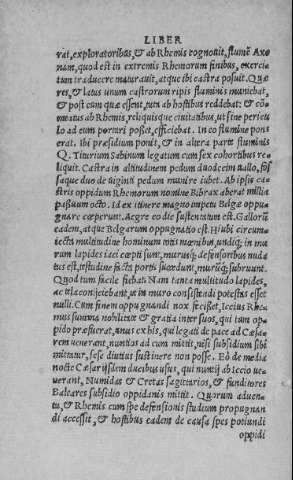 LIBER
rat, exploratoribus, & ab Rhemis cognouit, flumẽ Axo
nam, quod est in extremis Rhemorum finibus, exerci-
tum traducere maturauit, atque ibi castra posuit. Quæ
res, & latus unum castrorum ripis fluminis muniebat,
& post eum quæ essent, tuta ab hostibus reddebat: & cõ-
meatus ab Rhemis, reliquisque ciuitatibus, ut sine pericu
lo ad eum portari posset, efficiebat. In eo flumine pons
erat. Ibi præsidium ponit, & in altera parte fluminis
Q. Titurium Sabinum legatum cum sex cohortibus re
liquit. Castra in altitudinem pedum duodecim uallo, fos
saque duo de uiginti pedum munire iubet. Ab ipsis ca-
stris oppidum Rhemorum nomine Bibrax aberat millia
passuum octo. Id ex itinere magno impetu Belgæ oppu-
gnare cœperunt. Aegre eo die sustentatum est. Gallorũ
eadem, atque Belgarum oppugnatio est. Hi ubi circum-
iecta multitudine hominum totis mœnibus undiq; in mu
rum lapides iaci cœpti sunt, murusq; defensoribus nuda
tus est, testudine facta portis succedunt, murũq; subruunt.
Quod tum facile fiebat. Nam tanta multitudo lapides,
ac tela conijciebant, ut in muro consistendi potestas esset
nulli. Cum finem oppugnandi nox fecisset, Iccius Rhe-
mus summa nobilitate & gratia inter suos, qui tum op-
pido præfuerat, unus ex his, qui legati de pace ad Cæsa
rem uenerant, nuntios ad eum mittit, nisi subsidium sibi
mittatur, sese diutius sustinere non posse. Eò de media
nocte Cæsar ijsdem ducibus usus, qui nuntij ab Iccio ue-
nerant, Numidas & Cretas sagittarios, & funditores
Baleares subsidio oppidanis mittit. Quorum aduen-
tu, & Rhemis cum spe defensionis studium propugnan
di accessit, & hostibus eadem de causa spes potiundi
oppidi